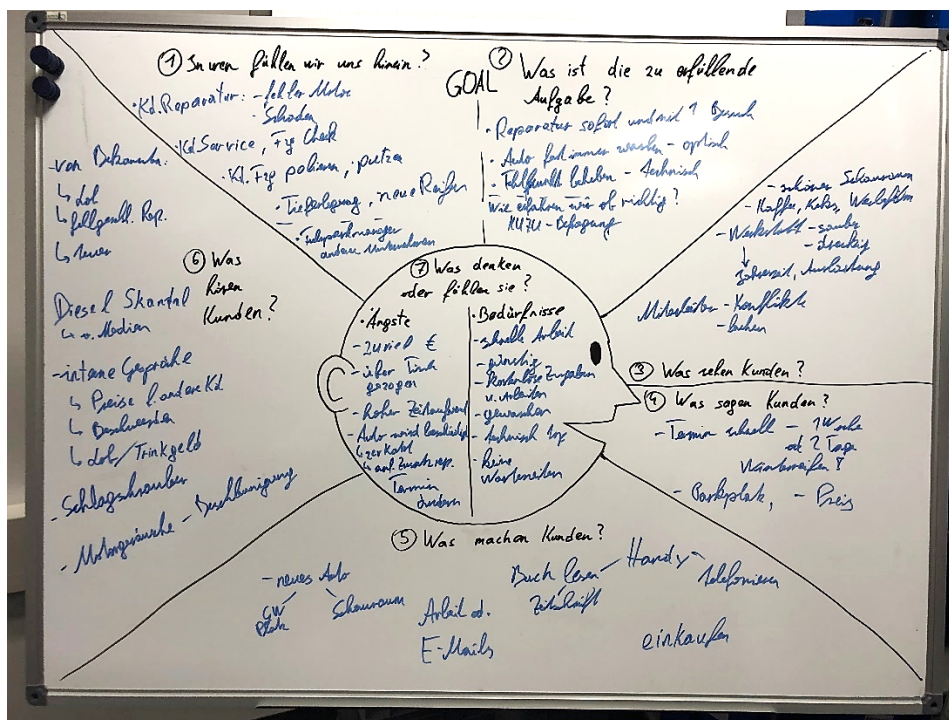 ① In wen fühlen wir uns hinein?
• Kd. Reparatur: - fehler Motor
- Schaden
• Kd Service, Fzg Check
• Kd. Fzg polieren, putzen
• Tieferlegung, neue Reifen
• Fuhrparkmanager
andere Unternehmen
GOAL
② Was ist die zu erfüllende
Aufgabe?
• Reparatur sofort und mit 1 Besuch
• Auto fast immer waschen - optisch
• beheben - technisch
Wie erfahren wir ob richtig?
KUZU - Befragung
- schöner Schauraum
- Kaffee, Kekse,
- Werkstatt - sauber
- dreckig
↓
Jahreszeit, Auslastung
Mitarbeiter - Konflikte
- lachen
③ Was sehen Kunden?
④ Was sagen Kunden?
- Termin schnell - 1 Woche
od 2 Tage
Winterreifen?
- Parkplatz, - Preis
⑤ Was machen Kunden?
- neues Auto
GW
Platz
Schauraum
Arbeit od.
E-Mails
Buch lesen
Zeitschrift
Handy
telefonieren
einkaufen
⑥ Was
hören
Kunden?
- von Bekannten:
↳ Lob
↳ Rep.
↳ teuer
Diesel Skandal
↳ v. Medien
- interne Gespräche
↳ Preise f. andere Kd
↳ Beschwerden
↳ Lob/Trinkgeld
- Schlagschrauber
- Motorgeräusche - Beschleunigung
⑦ Was denken
oder fühlen sie?
• Ängste
- zuviel €
- über Tisch
gezogen
- hoher Zeitaufwand
- Auto wird beschädigt
↳ zerkratzt
↳ auf Zusatzrep.
Termin
ändern
• Bedürfnisse
- schnelle Arbeit
- günstig
- kostenlose Zugaben
u. Arbeiten
- gewaschen
- technisch top
- keine
Wartezeiten